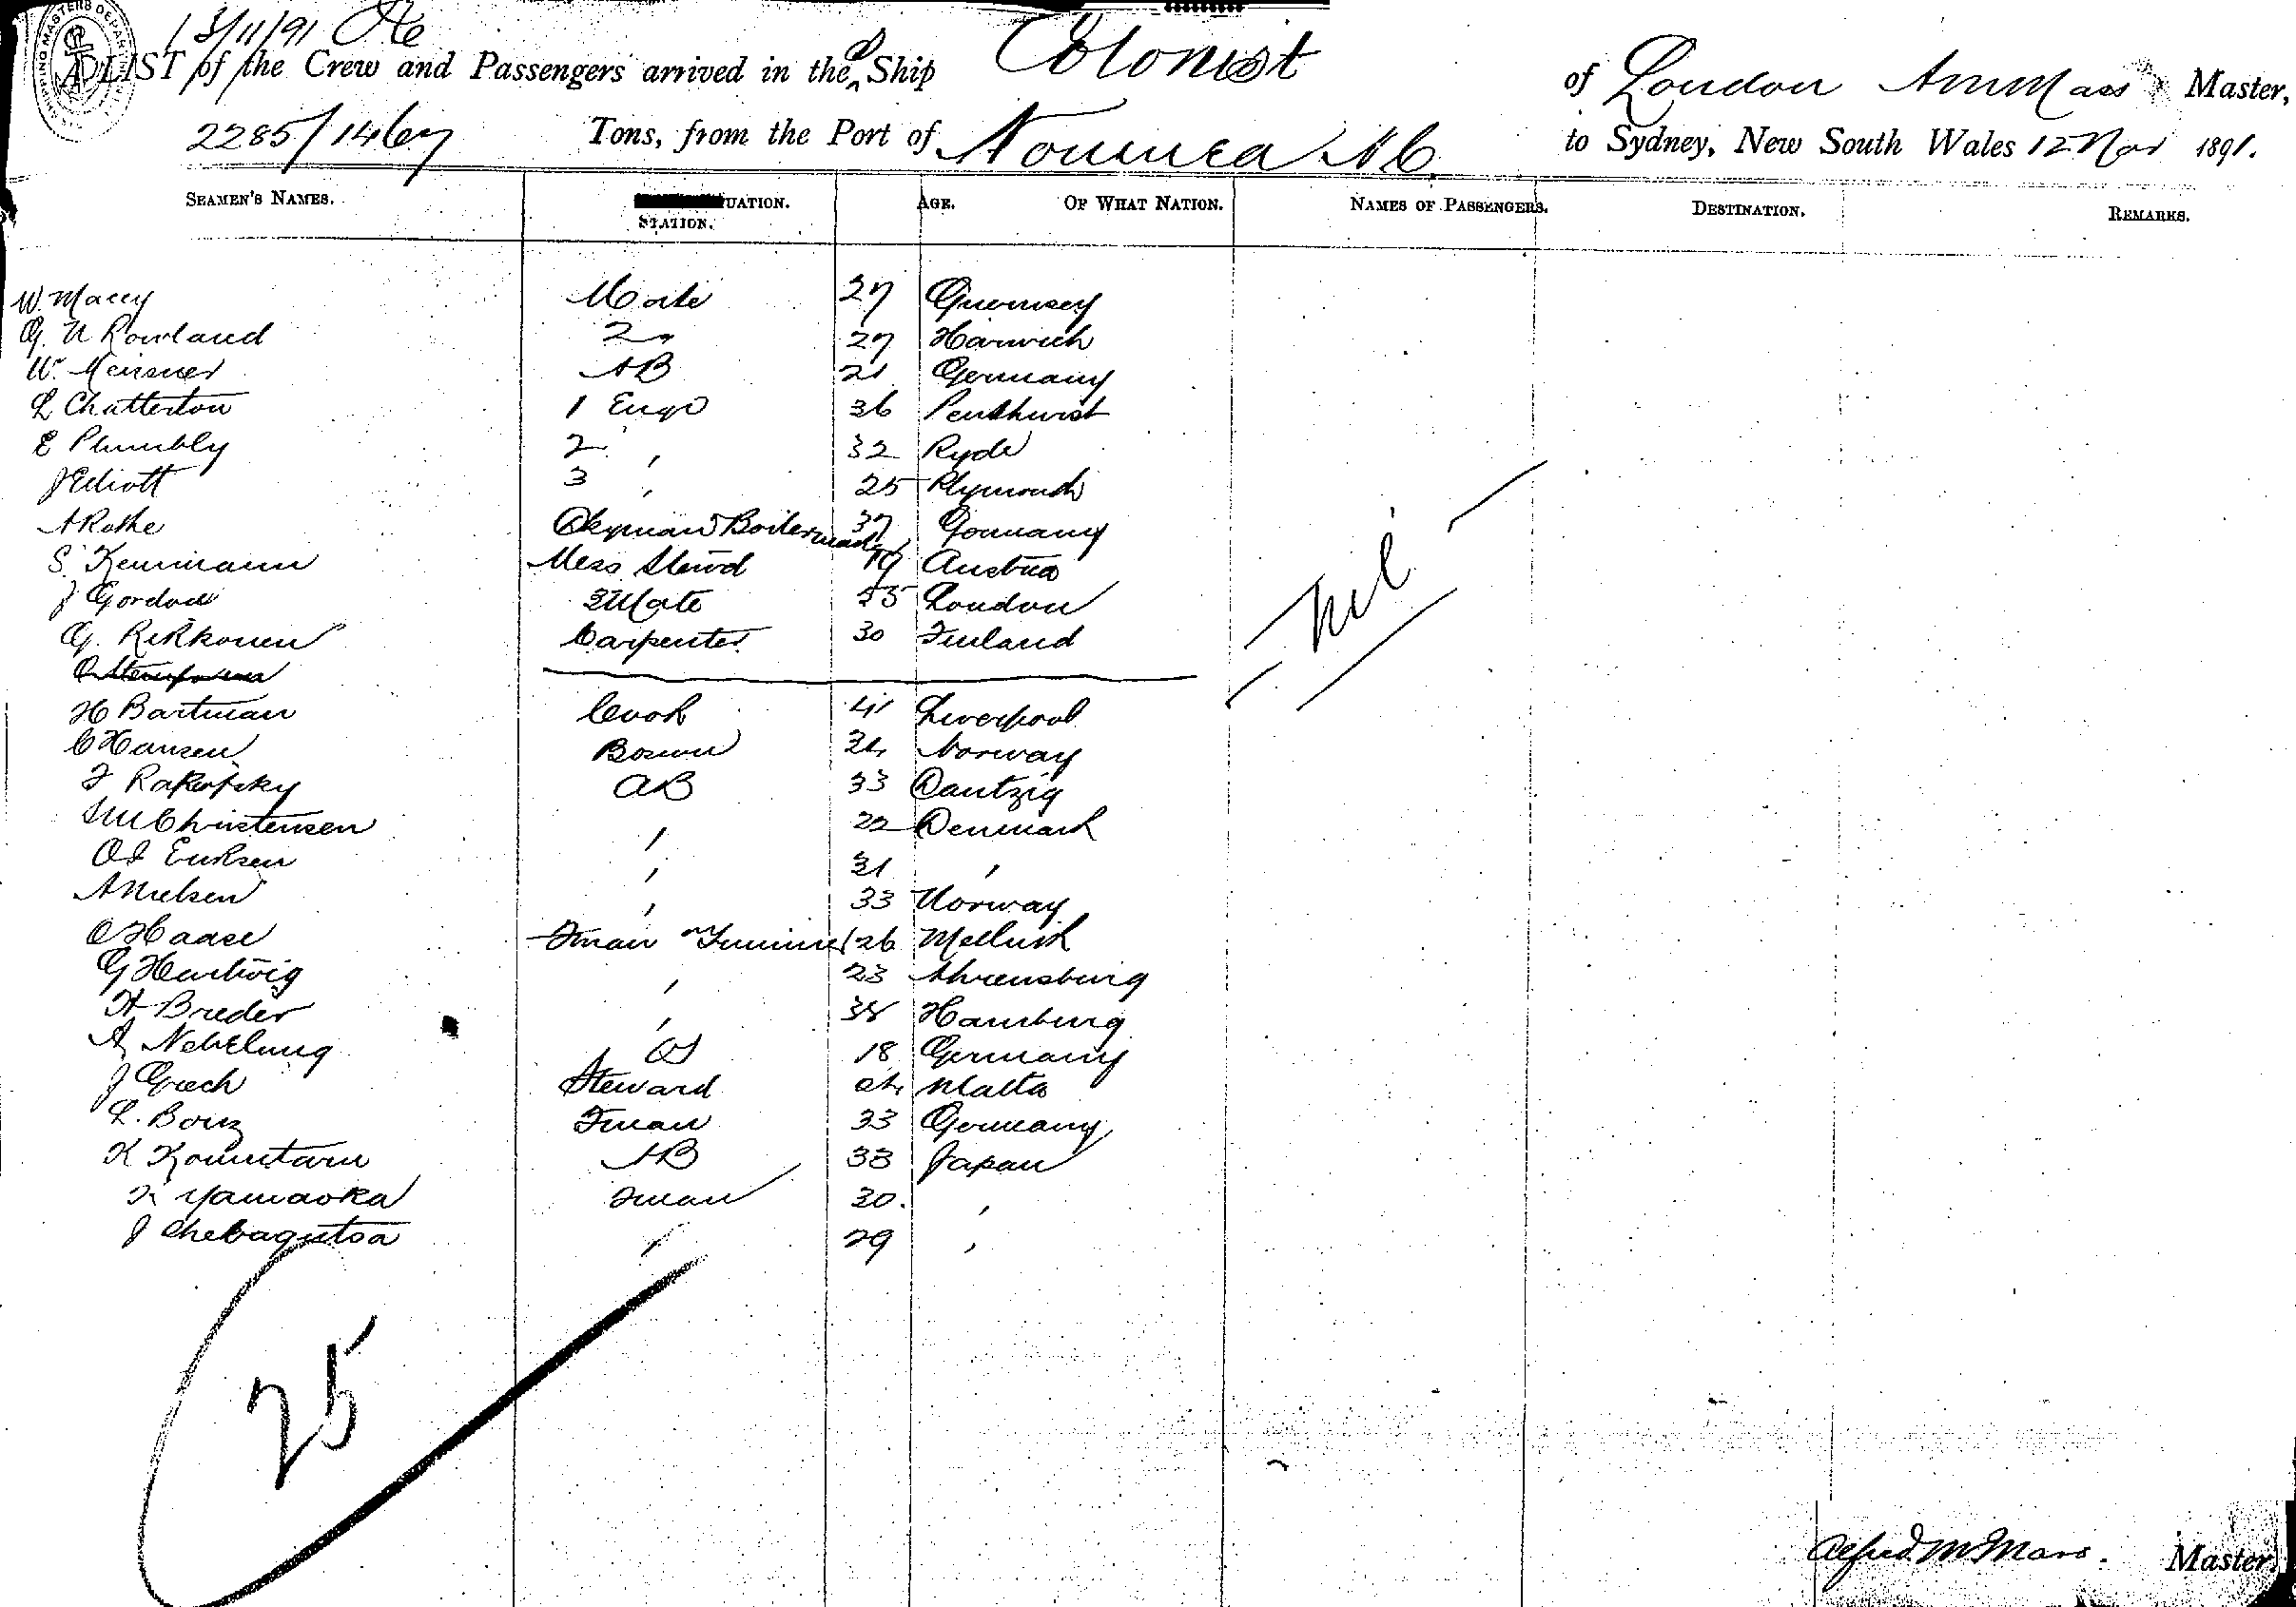 13/11/91
A LIST of the Crew and Passengers arrived in the S Ship Colonist of London A M Mars Master,
2285/1467 Tons, from the Port of Noumea N C. to Sydney, New South Wales 12 Nov 1891.
SEAMEN'S NAMES. UATION. STATION. AGE. OF WHAT NATION. NAMES OF PASSENGERS. DESTINATION. REMARKS.
W. Macey Mate 27 Guernsey
G. N Rowland 2 " 27 Harwich
W. Meisner AB 21 Germany
L Chatterton 1 Engr 36 Penshurst
E Plumbly 2 " 32 Ryde
J Elliott 3 " 25 Plymouth
A Rothe Dkyman & Boilermaker 37 Germany
S. Kenimann Mess Stewd 19 Austria
J Gordon 3 Mate London
G. Rikkonen Carpenter 30 Finland
H Bartman Cook 41 Liverpool
C Hansen Bosun 34 Norway
F Rakofsky AB 33 Dantzig
Christensen " 22 Denmark
Eriksen " 31 "
A Nielsen " 33 Norway
O Haase Fman & Trimmer 26
G Hartwig " 23 Ahrensburg
H Breder " 38 Hamburg
A Nebelung OS 18 Germany
J Grech Steward Malta
L. Boinz Fman 33 Germany
K Komutaru AB 33 Japan
K Yamaoka Fman 30. "
J Chebagutsa " 29 "
- Nil -
25
Alfred M Mars. Master.